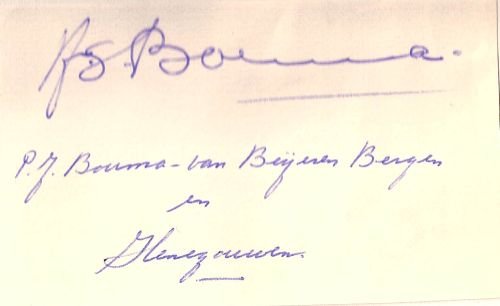 H. S. Bouma.
P. J. Bouma - van Beijeren Bergen
en
Henegouwen.